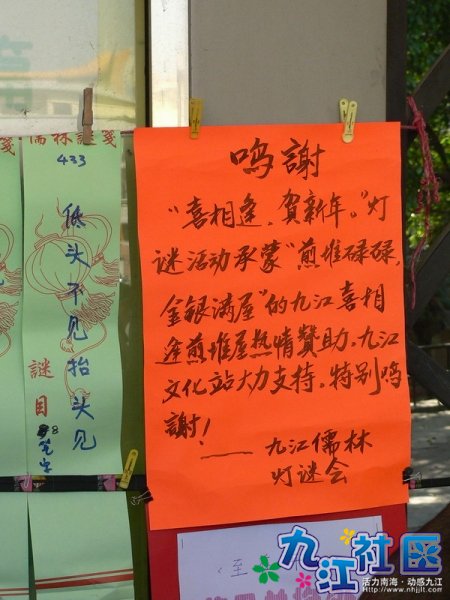 儒林謎箋
433
低头不见抬头见
謎目
8笔字
鸣謝
"喜相逢,贺新年。"灯
谜活动承蒙"煎堆碌碌,
金银满屋"的九江喜相
逢煎堆屋热情赞助,九江
文化站大力支持。特别鸣
謝!
——九江儒林
灯谜会
至
九江社区
活力南海·动感九江
Http://www.nhjjlt.com